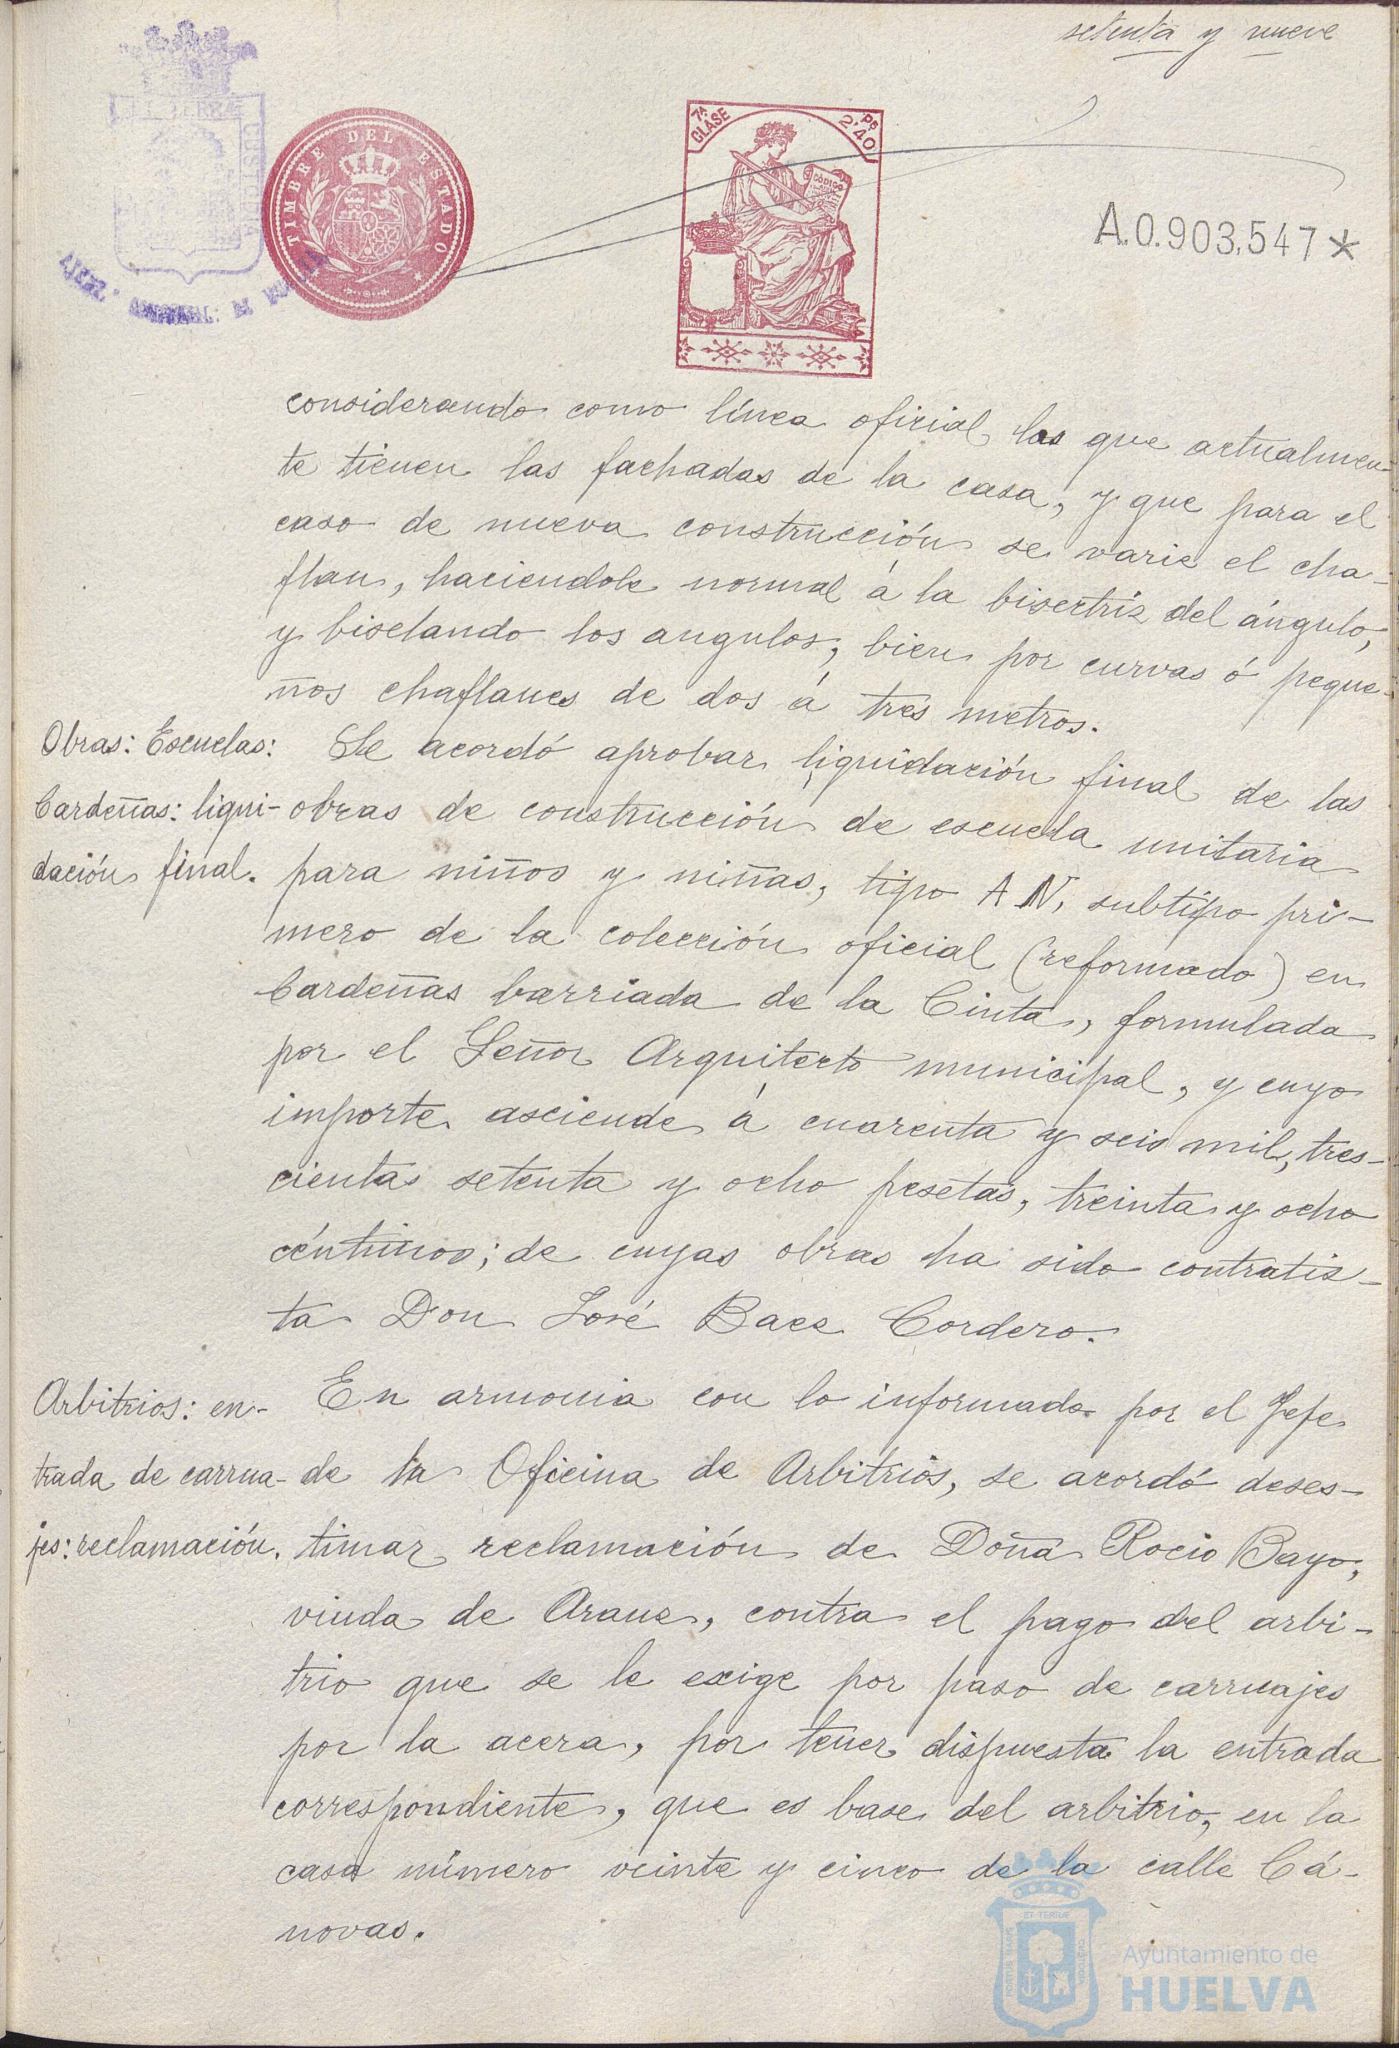 setenta y nueve
TIMBRE DEL ESTADO
7ª CLASE
2'40 Ps
CÓDIGO
A.0.903,547*
considerando como línea oficial las que actualmen-
te tienen las fachadas de la casa, y que para el
caso de nueva construcción se varie el cha-
flan, haciendole normal á la bisectriz del ángulo,
y biselando los angulos, bien por curvas ó peque-
ños chaflanes de dos á tres metros.
Obras: Escuelas:
Cardeñas: liqui-
dación final.
Se acordó aprobar liquidación final de las
obras de construcción de escuela unitaria
para niños y niñas, tipo A N, subtipo pri-
mero de la colección oficial (reformado) en
Cardeñas barriada de la Cinta, formulada
por el Señor Arquitecto municipal, y cuyo
importe asciende á cuarenta y seis mil, tres-
cientas setenta y ocho pesetas, treinta y ocho
céntimos; de cuyas obras ha sido contratis-
ta Don José Baez Cordero.
Arbitrios: en-
trada de carrua-
jes: reclamación.
En armonia con lo informado por el Jefe
de la Oficina de Arbitrios, se acordó deses-
timar reclamación de Doña Rocio Bayo,
viuda de Arauz, contra el pago del arbi-
trio que se le exige por paso de carruajes
por la acera, por tener dispuesta la entrada
correspondiente, que es base del arbitrio, en la
casa número veinte y cinco de la calle Cá-
novas.
Ayuntamiento de
HUELVA